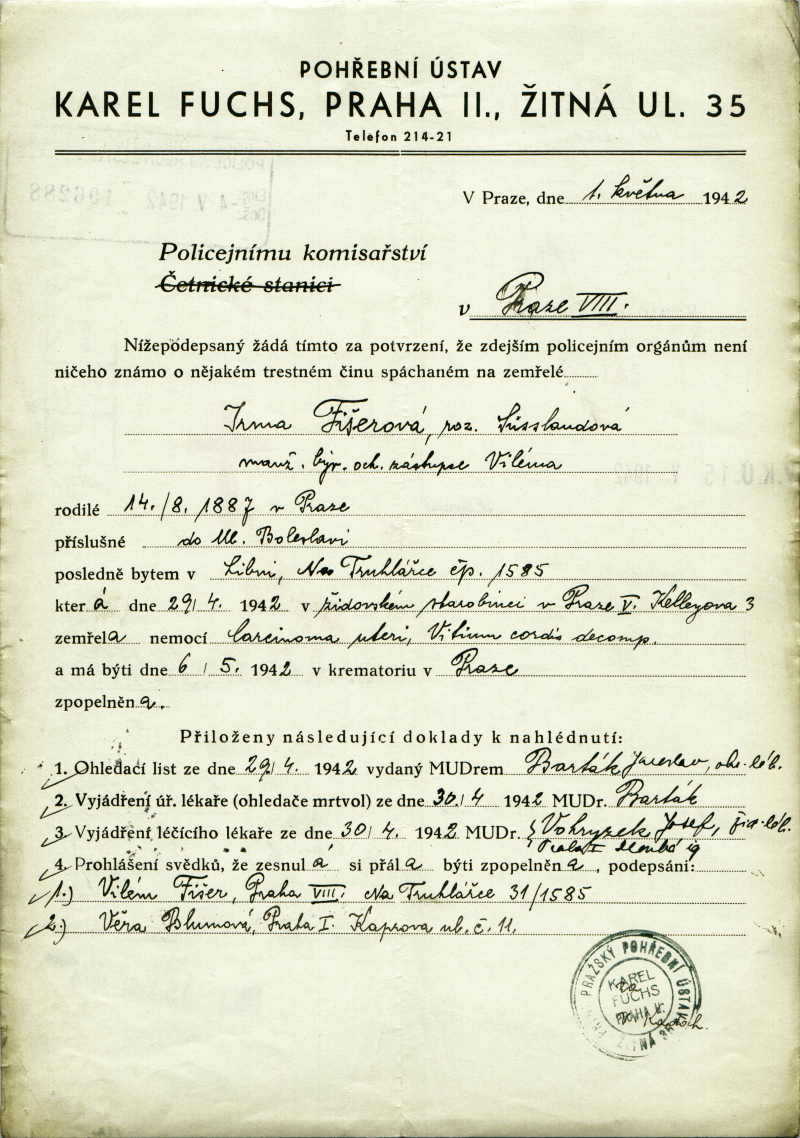 POHŘEBNÍ ÚSTAV
KAREL FUCHS, PRAHA II., ŽITNÁ UL. 35
Telefon 214-21
V Praze, dne 1. května 1942
Policejnímu komisařství
Četnické stanici
v Praze VIII.
Nížepodepsaný žádá tímto za potvrzení, že zdejším policejním orgánům není
ničeho známo o nějakém trestném činu spáchaném na zemřelé
Irma Fišerová, roz. Süsslandová
manž. býv. och. zástupce Viléma
rodilé 14./8. 1887 v Praze
příslušné do Ml. Boleslavi
posledně bytem v Libni, Na Truhlářce čp. 1585
kter á dne 29/4. 1942 v židovském starobinci v Praze V. Kelleyova 3
zemřela nemocí Carcinoma uteri, Vitium cordis decomp.
a má býti dne 6/5. 1942 v krematoriu v Praze
zpopelněn a.
Přiloženy následující doklady k nahlédnutí:
1. Ohledací list ze dne 29/4. 1942 vydaný MUDrem Barták Jaroslav,
2. Vyjádření úř. lékaře (ohledače mrtvol) ze dne 30./4 1942 MUDr. Barták
3. Vyjádření léčícího lékaře ze dne 30/4. 1942 MUDr. Vohryzek Josef,
4. Prohlášení svědků, že zesnul á si přál a býti zpopelněn a, podepsáni:
1.) Vilém Fišer, Praha VIII. Na Truhlářce 31/1585
2.) Věra Blumová, Praha I. Kaprova ul. č. 11.
PRAŽSKÝ POHŘEBNÍ ÚSTAV
KAREL
FUCHS
PRAHA II.
ŽITNÁ 35